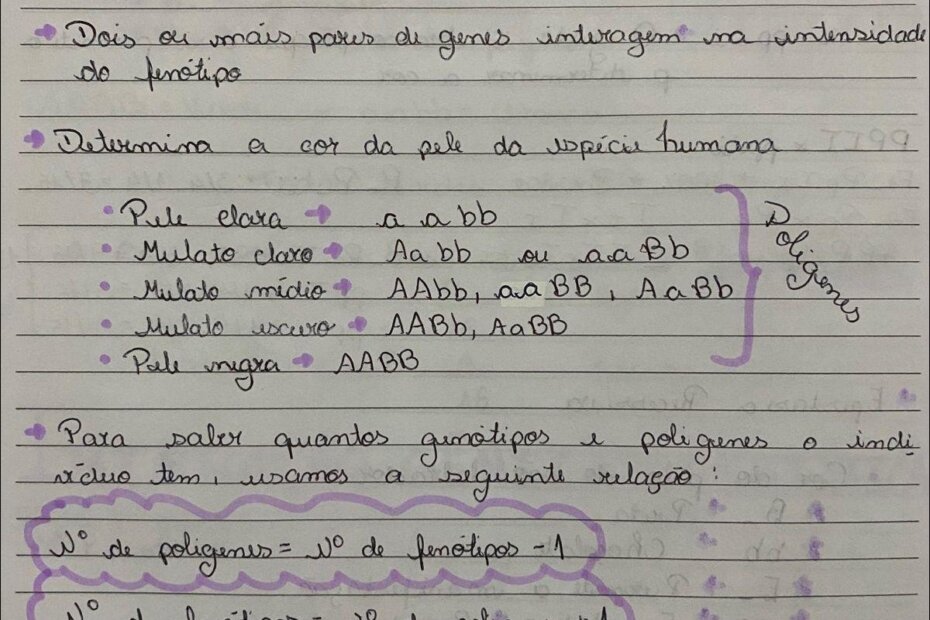 Dois ou mais pares de genes interagem na intensidade
do fenótipo
Determina a cor da pele da espécie humana
Pele clara → aabb
Mulato claro → Aabb ou aaBb
Mulato médio → AAbb, aaBB, AaBb
Mulato escuro → AABb, AaBB
Pele negra → AABB
Poligenes
Para saber quantos genótipos e poligenes o indi
víduo tem, usamos a seguinte relação:
Nº de poligenes = Nº de fenótipos - 1
Nº de